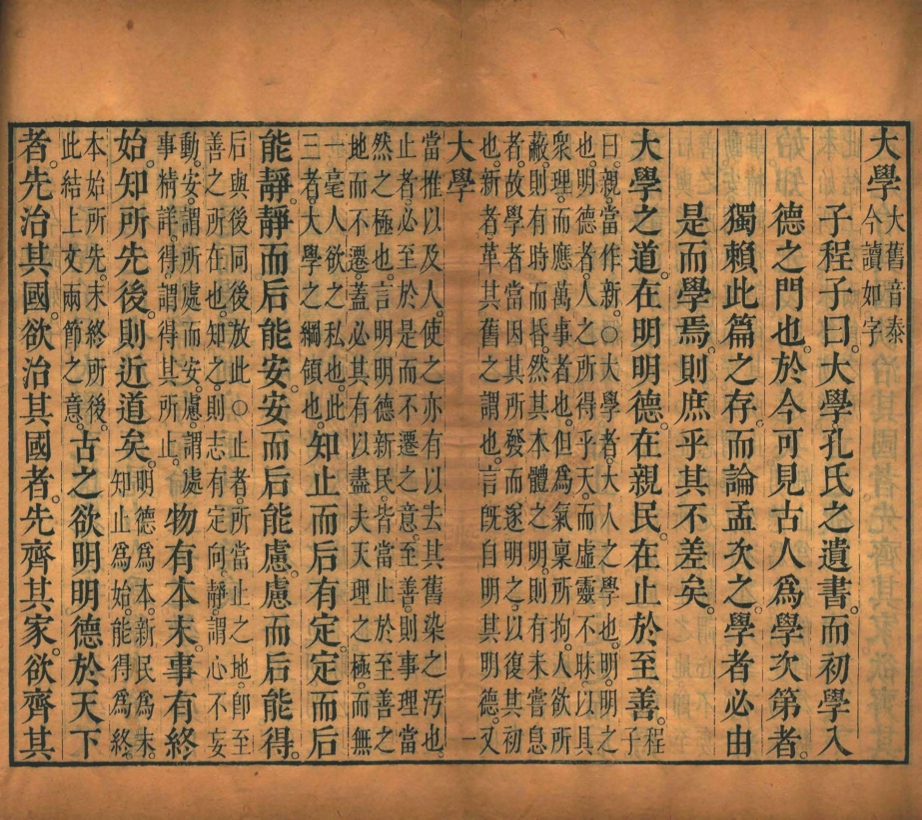 大學
大舊音泰
今讀如字
子程子曰。大學孔氏之遺書。而初學入
德之門也。於今可見古人爲學次第者。
獨賴此篇之存。而論孟次之。學者必由
是而學焉。則庶乎其不差矣。
大學之道。在明明德。在親民。在止於至善。
程
子
曰。親。當作新。○大學者。大人之學也。明。明之
也。明德者。人之所得乎天。而虛靈不昧。以具
衆理。而應萬事者也。但爲氣稟所拘。人欲所
蔽。則有時而昏。然其本體之明。則有未嘗息
者。故學者當因其所發而遂明之。以復其初
也。新者。革其舊之謂也。言旣自明其明德。又
大學
一
當推以及人。使之亦有以去其舊染之汚也。
止者。必至於是而不遷之意。至善。則事理當
然之極也。言明明德新民。皆當止於至善之
地而不遷。蓋必其有以盡夫天理之極。而無
一毫人欲之私也。此
三者。大學之綱領也。
知止而后有定。定而后
能靜。靜而后能安。安而后能慮。慮而后能得。
后與後同。後放此。○止者。所當止之地。卽至
善之所在也。知之。則志有定向。靜。謂心不妄
動。安。謂所處而安。慮。謂處
事精詳。得。謂得其所止。
物有本末。事有終
始。知所先後。則近道矣。
明德爲本。新民爲末。
知止爲始。能得爲終。
本始所先。末終所後。
此結上文兩節之意。
古之欲明明德於天下
者。先治其國。欲治其國者。先齊其家。欲齊其